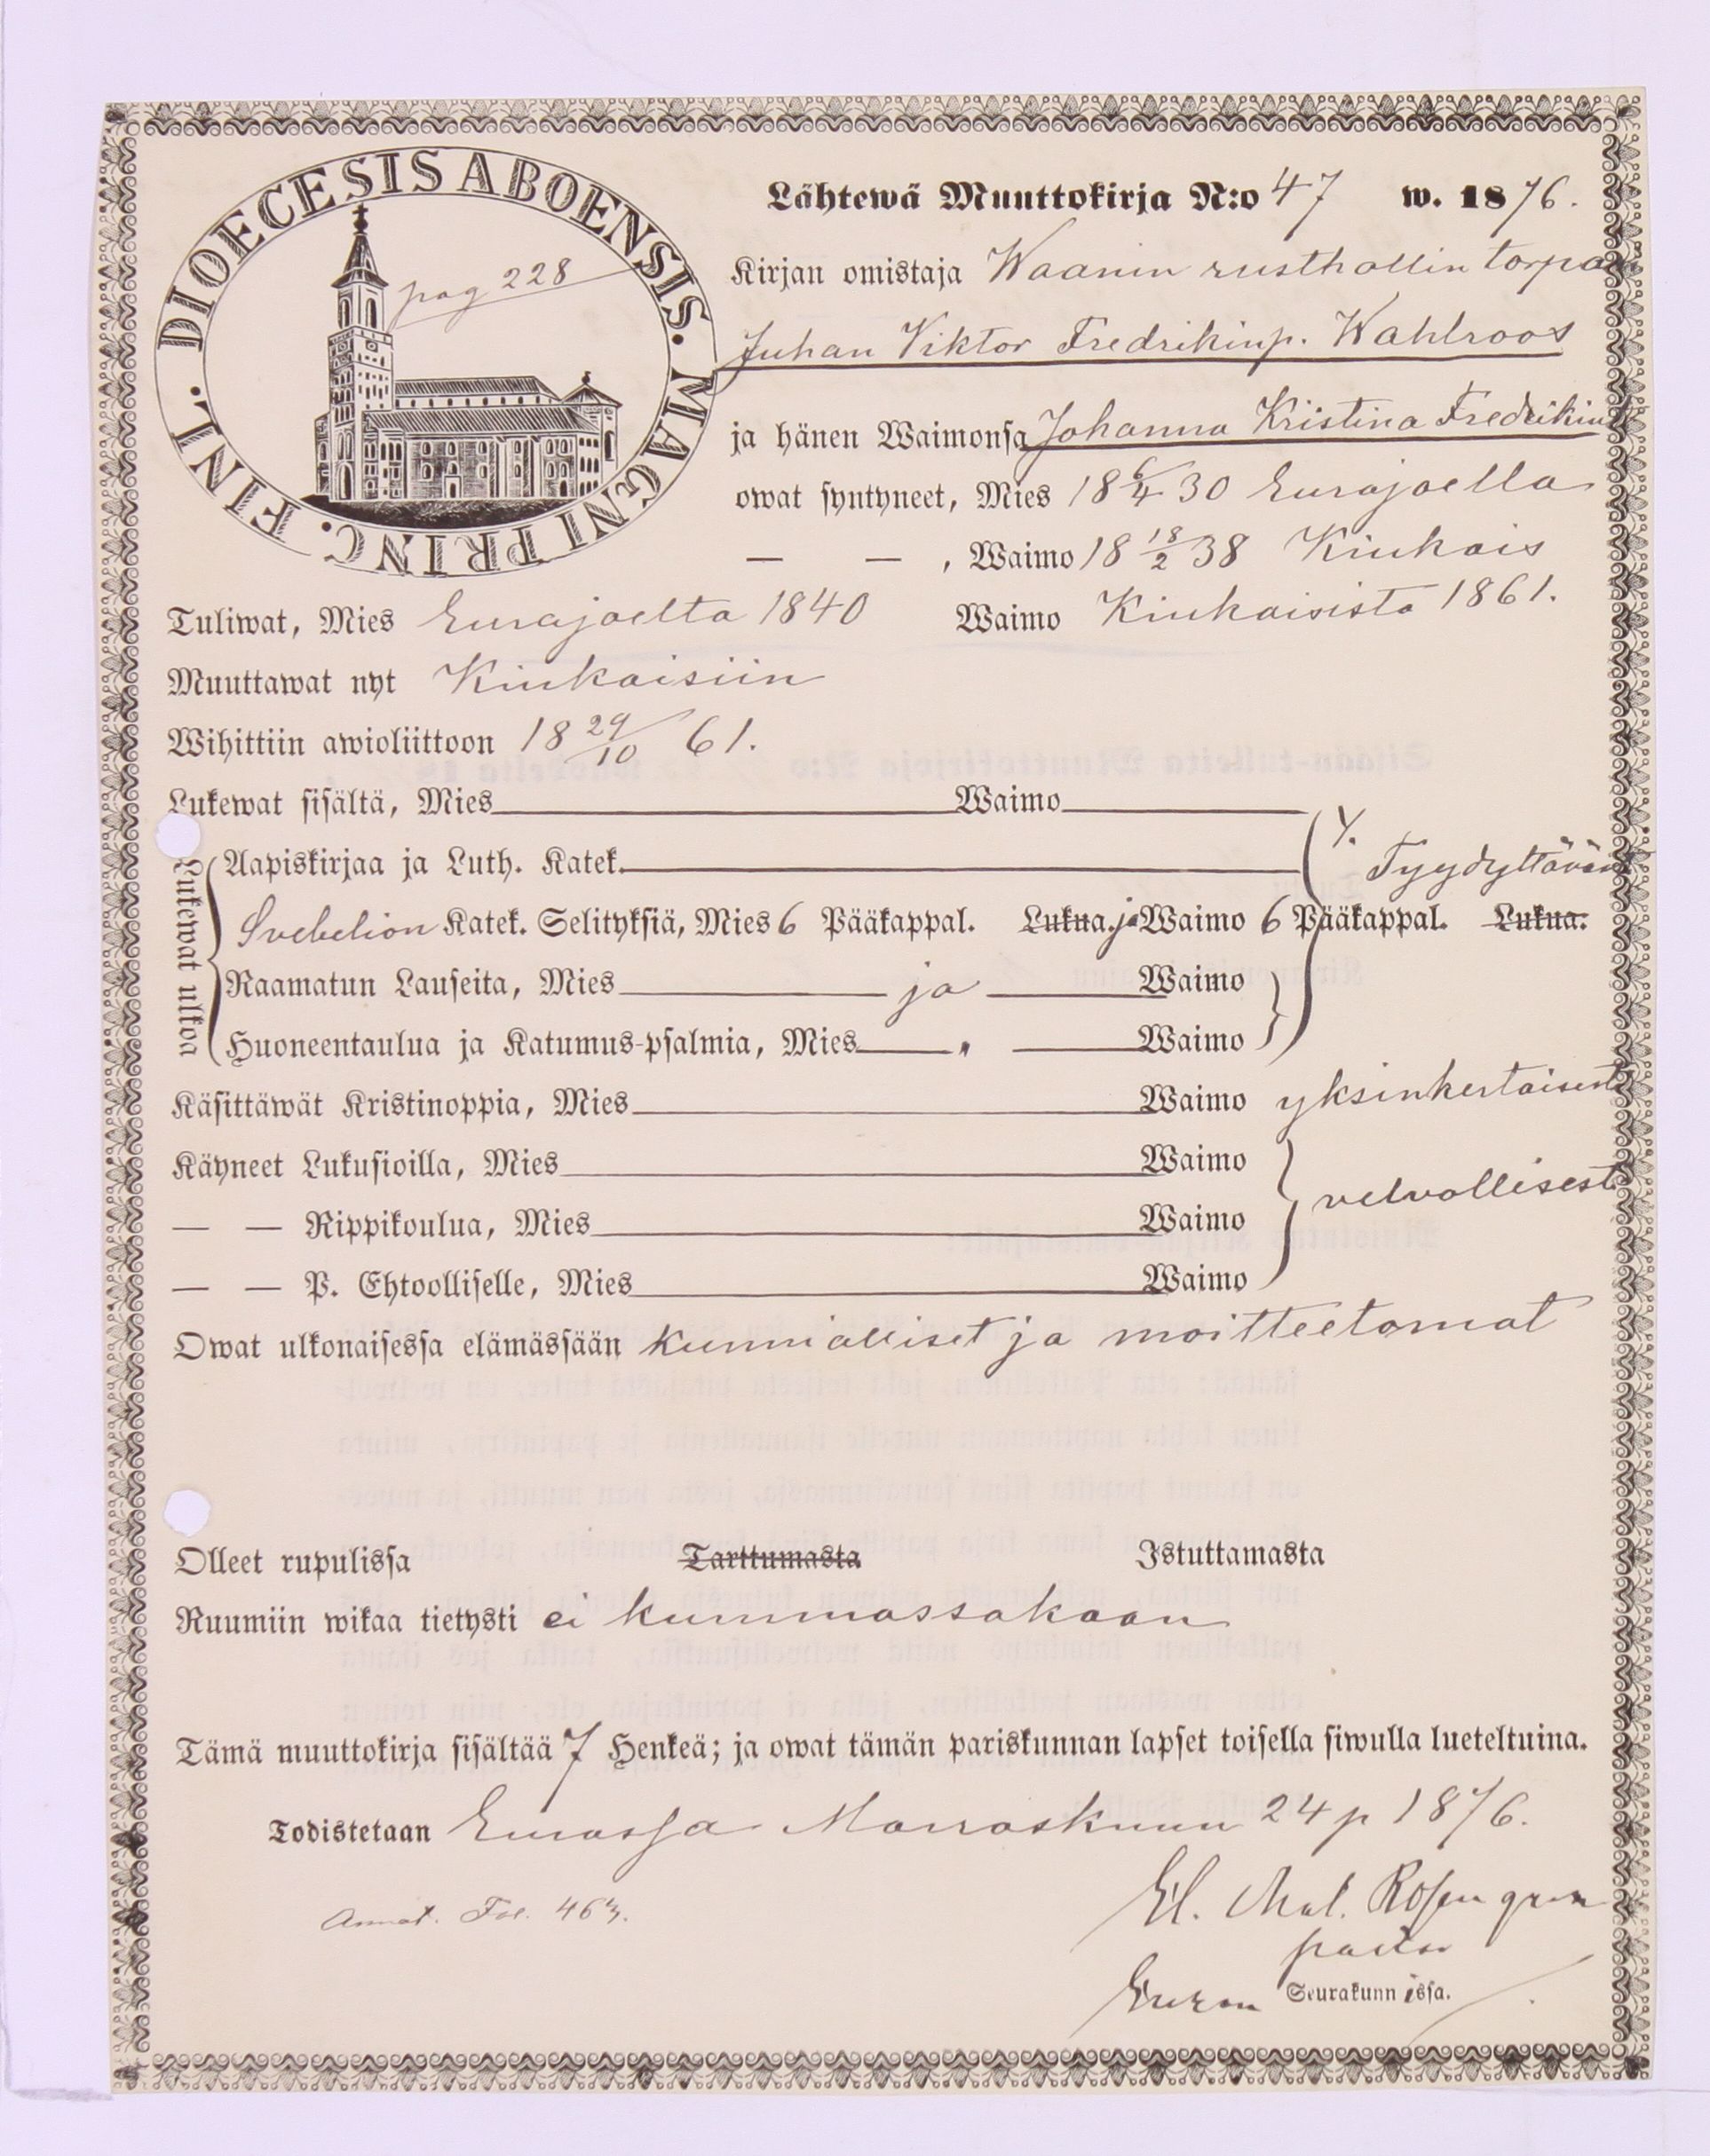 DIOECESIS ABOENSIS. MAGNI PRINC. FINL.
pag 228
Lähtewä Muuttokirja N:o 47 w. 1876.
Kirjan omistaja Waanin rusthollin torpan
Juhan Viktor Fredrikinp. Wahlroos
ja hänen Waimonsa Johanna Kristina Fredrikint
owat syntyneet, Mies 18 6/4 30 Eurajoella
— — , Waimo 18 18/2 38 Kiukais
Tuliwat, Mies Eurajoelta 1840 Waimo Kiukaisista 1861.
Muuttawat nyt Kiukaisiin
Wihittiin awioliittoon 18 29/10 61.
Lukewat sisältä, Mies Waimo
Lukewat ulkoa
Aapiskirjaa ja Luth. Katek. Tyydyttäväst
Svebelion Katek. Selityksiä, Mies 6 Pääkappal. Lukua. ja Waimo 6 Pääkappal. Lukua.
Raamatun Lauseita, Mies ja Waimo
Huoneentaulua ja Katumus-psalmia, Mies " Waimo
Käsittäwät Kristinoppia, Mies Waimo yksinkertaisesti
Käyneet Lukusioilla, Mies Waimo velvollisesti
— — Rippikoulua, Mies Waimo
— — P. Ehtoolliselle, Mies Waimo
Owat ulkonaisessa elämässään kunnialliset ja moitteetomat
Olleet rupulissa Tarttumasta Istuttamasta
Ruumiin wikaa tietysti ei kummassakaan
Tämä muuttokirja sisältää 7 Henkeä; ja owat tämän pariskunnan lapset toisella siwulla lueteltuina.
Todistetaan Eurassa Marraskuun 24 p 1876.
Annot. Fol. 463.
El. Rosengren
pastor
Euran Seurakunnissa.